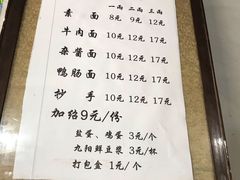 一两 二两 三两
素面 8元 9元 12元
牛肉面 10元 12元 17元
杂酱面 10元 12元 17元
鸭肠面 10元 12元 17元
抄手 10元 12元 17元
加绍9元/份
盐蛋、鸡蛋 3元/个
九阳鲜豆浆 3元/杯
打包盒 1元/个